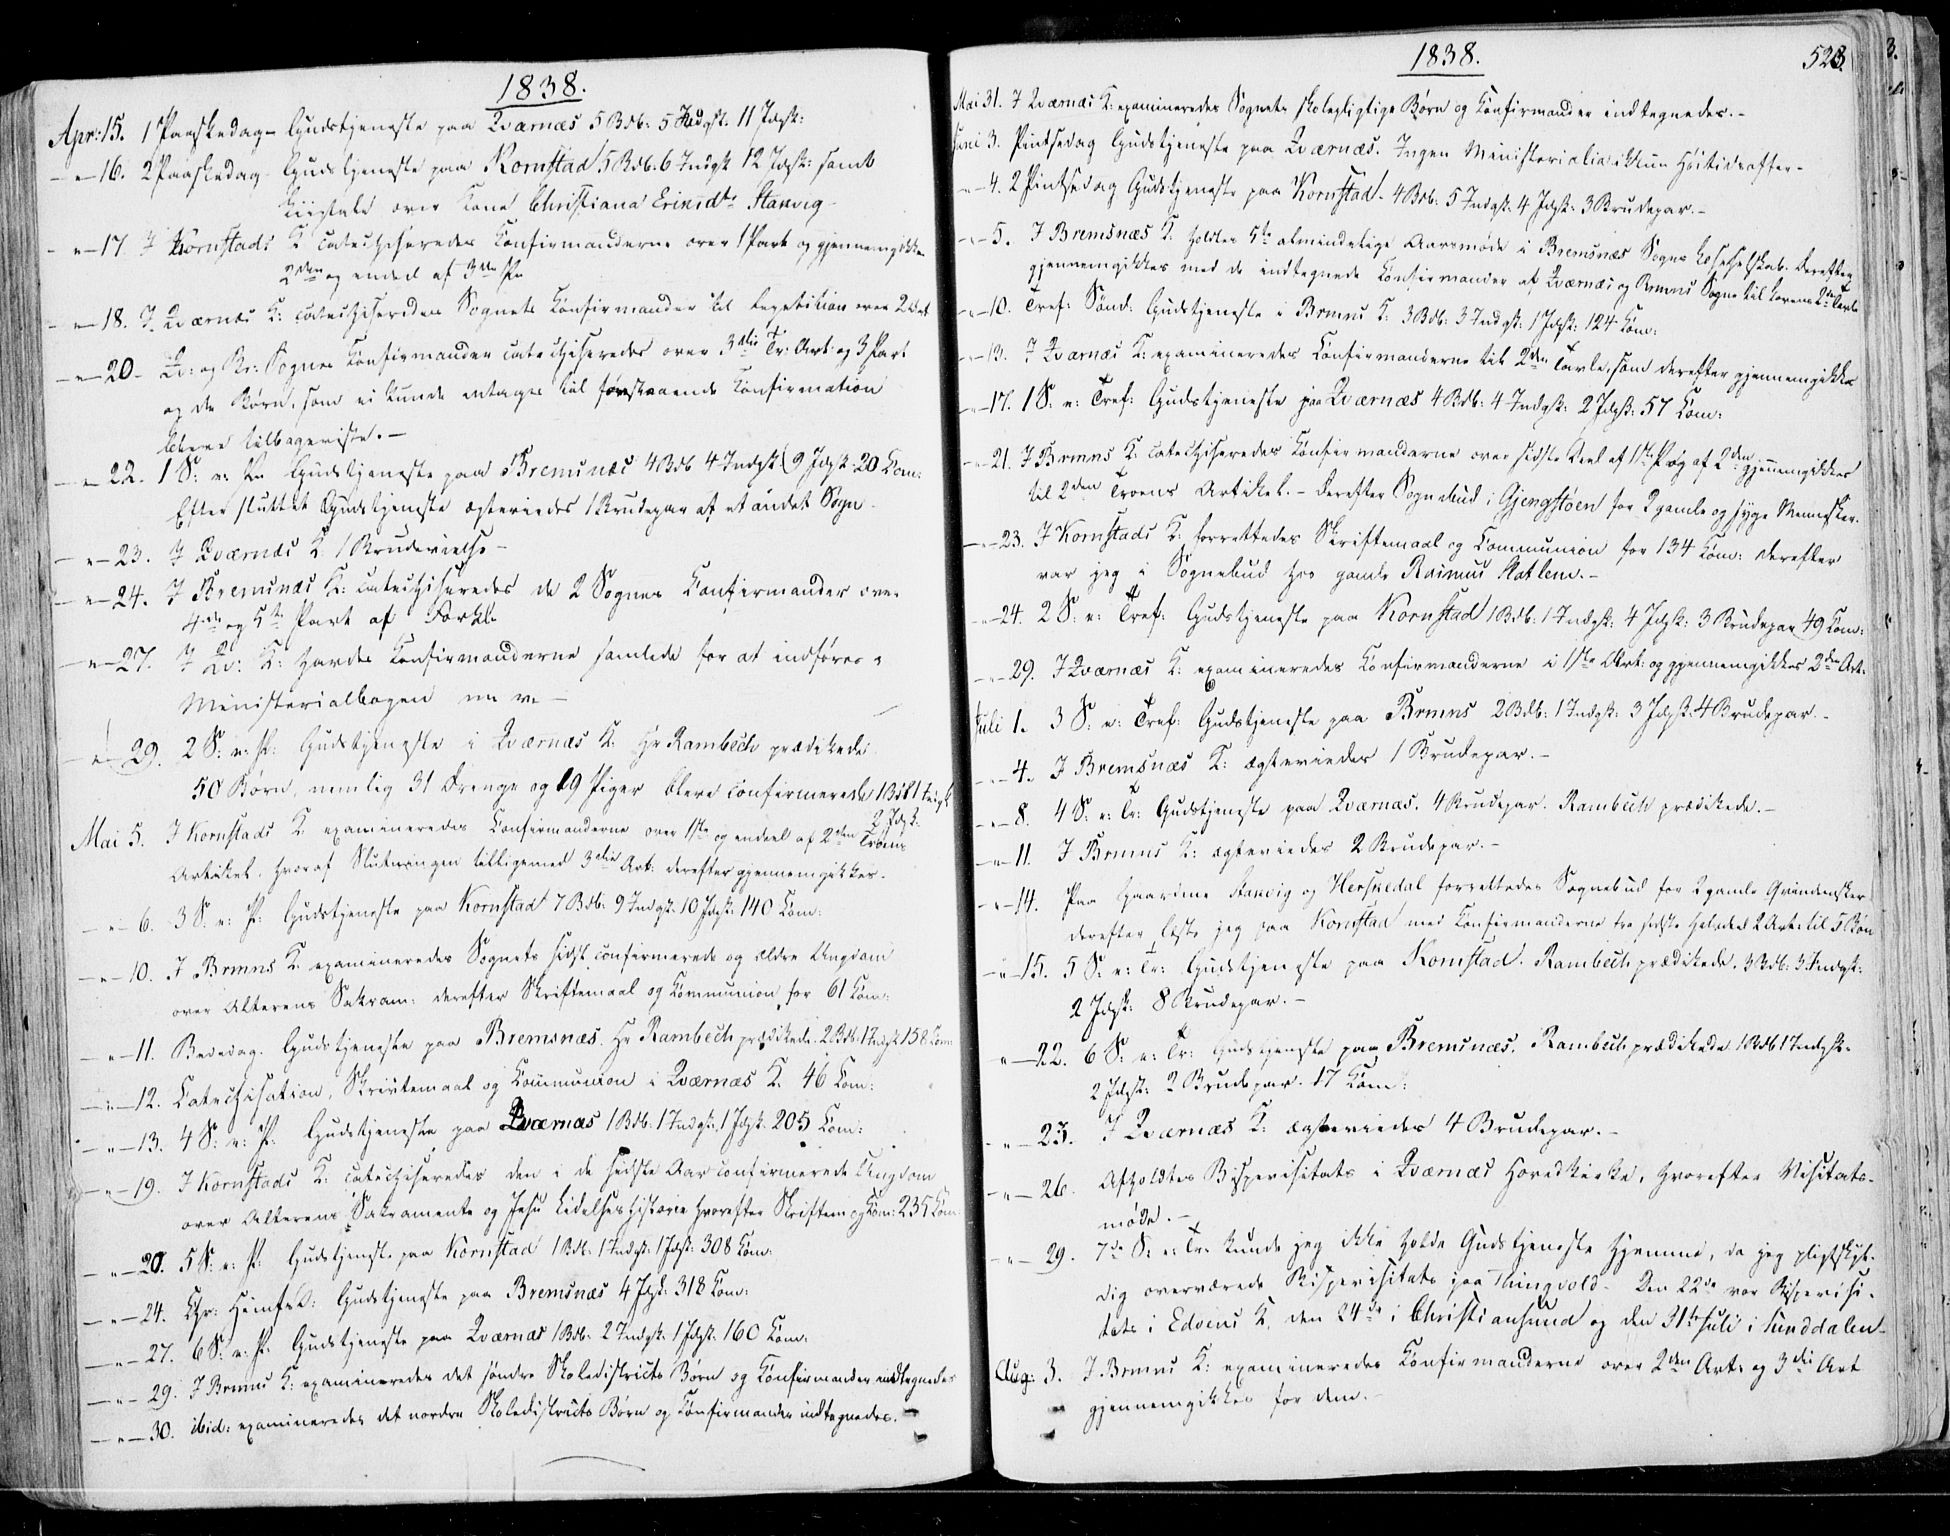 1838.
Apr: 15. 1 Paaskedag - Gudstjeneste paa Qværnæs 5 Bdb: 5 Indgk: 11 Jdgk:
- " - 16. 2 Paaskedag - Gudstjeneste paa Kornstad 5 Bdb. 6 Indgk 12 Jdgk: samt
Liigtale over Kone Christiana Erinidtr Stanvig -
- " - 17. I Kornstads K catechiseredes Confirmanderne over 1 Part og gjennemgikkes
2den og endeel af 3die Pa
- " - 18. I Qværnæs K: catechiseredes Sognets Confirmander til Repetition over 2 Art
- " - 20 - Qv: og Br: Sognes Confirmander catechiseredes over 3die Tr: Art: og 3 Part
og de Børn, som ei kunde antages til forestaaende Confirmation
bleve tilbageviste. -
- " - 22. 1 S: e: Pa Gudstjeneste paa Bremsnæs 4 Bdb 4 Indgk 9 Jdgk. 20 Com:
Efter sluttet Gudstjeneste egteviedes 1 Brudepar af et andet Sogn -
- " - 23. I Qværnæs K: 1 Brudevielse -
- " - 24. I Bremsnæs K: catechiseredes de 2 Sognes Confirmander over
4de og 5te Part af Forkl:
- " - 27. I Qv: K: havdes Confirmanderne samlede for at indføres i
Ministerialbogen m v. -
- " - 29. 2 S: e: P: Gudstjeneste i Qværnæs K: Hr Rambech prædikede
50 Børn, nemlig 31 Drenge og 19 Piger bleve confirmerede 1 Bdb 1 Indgk
2 Jdgk.
Mai 5. I Kornstads K examineredes Confirmanderne over 1ste og endeel af 2den Troens
Artikel, hvoraf Slutningen tilligemed 3die Art: derefter gjennemgikkes.
- " - 6. 3 S. e: P: Gudstjeneste paa Kornstad 7 Bdb: 9 Indgk: 10 Jdgk: 140 Com:
- " - 10. I Brmns K: examineredes Sognets sidst confirmerede og ældre Ungdom
over Alterens Sakram: derefter Skriftemaal og Communion for 61 Com:
- " - 11. Bededag. Gudstjeneste paa Bremsnæs. Hr Rambech prædikede. 2 Bdb: 1 Indgk 158 Com:
- " - 12. Catechisation, Skriftemaal og Communion i Qværnæs K: 46 Com:
- " - 13. 4 S: e: P: Gudstjeneste paa Qværnæs 1 Bdb: 1 Indgk: 1 Jdgk: 205 Com:
- " - 19. I Kornstads K: catechiseredes den i de sidste Aar confirmerede Ungdom
over Alterens Sakramente og Jesu Lidelses Historie hvorefter Skriftem og Com: 235 Com
- " - 20. 5 S: e: P: Gudstjeneste paa Kornstad 1 Bdb: 1 Indgk: 1 Jdgk: 308 Com:
- " - 24. Chr: Himfrt: Gudstjeneste paa Bremsnæs 4 Jdgk: 318 Com:
- " - 27. 6 S: e: P: Gudstjeneste paa Qværnæs 1 Bdb: 2 Indgk: 1 Jdgk: 160 Com:
- " - 29. I Brmns K: examineredes det søndre Skoledistricts Børn og Confirmander indtegnedes
- " - 30. ibid: examineredes det nordre Skoledistricts Børn og Confirmander indtegnedes.
1838. 523.
Mai 31. I Qværnæs K: examineredes Sognets skolepligtige Børn og Confirmander indtegnedes. -
Juni 3. Pintsedag Gudstjeneste paa Qværnæs. Ingen Ministerialia ikkun Høitidsoffer -
- " - 4. 2 Pintsedag Gudstjeneste paa Kornstad. 4 Bdb: 5 Indgk: 4 Jdgk: 3 Brudepar. -
- " - 5. I Bremsnæs K. holdtes 5te almindelige Aarsmøde i Bremsnæs Sogns Læseselskab. Derefter
gjennemgikkes med de indtegnede Confirmander af Qværnæs og Brmns Sogne til Lovens 2den Tavle
- " - 10. Tref: Sønd: Gudstjeneste i Brmns K: 3 Bdb: 3 Indgk: 1 Jdgk: 124 Com:
- " - 13. I Qværnæs K: examineredes Confirmanderne til 2den Tavle, som derefter gjennemgikkes
- " - 17. 1 S: e: Tref: Gudstjeneste paa Qværnæs 4 Bdb: 4 Indgk: 2 Jdgk: 57 Com:
- " - 21. I Brmns K: catechiseredes Confirmanderne over sidste Deel af 1ste P. og af 2den gjennemgikkes
til 2den Troens Artikel. - Derefter Sognebud i Gjengstøen for 2 gamle og syge Mennesker.
- " - 23. I Kornstads K: forrettedes Skriftemaal og Communion for 134 Com: derefter
var jeg i Sognebud hos gamle Rasmus Hatlem. -
- " - 24. 2 S: e: Tref: Gudstjeneste paa Kornstad 1 Bdb: 1 Indgk: 4 Jdgk: 3 Brudepar 49 Com:
- " - 29. I Qværnæs K: examineredes Confirmanderne i 1ste Art: og gjennemgikkes 2den Art.
Juli 1. 3 S: e: Tref: Gudstjeneste paa Brmns 2 Bdb: 1 Indgk: 3 Jdgk: 4 Brudepar. -
- " - 4. I Bremsnæs K: egteviedes 1 Brudepar. -
- " - 8. 4 S: e: Tr: Gudstjeneste paa Qværnæs. 4 Brudepar. Rambech prædikede. -
- " - 11. I Brmns K: egteviedes 2 Brudepar. -
- " - 14. Paa Gaardene Stanvig og Herskedal forrettedes Sognebud for 2 gamle Qvindemsker
derefter læste jeg paa Kornstad med Confirmanderne fra sidste Halvdeel 2 Art: til 5 Bøn
- " - 15. 5 S: e: Tr: Gudstjeneste paa Kornstad. Rambech prædikede. 3 Bdb: 3 Indgk:
2 Jdgk: 8 Brudepar. -
- " - 22. 6 S: e: Tr: Gudstjeneste paa Bremsnæs. Rambech prædikede 1 Bdb 1 Indgk:
2 Jdgk: 2 Brudepar. 17 Com:
- " - 23. I Qværnæs K: egteviedes 4 Brudepar. -
- " - 26. Afholdtes Bispevisitats i Qværnæs Hovedkirke, hvorefter Visitats-
møde. -
- " - 29. 7de S: e: Tr: kunde jeg ikke holde Gudstjeneste hjemme, da jeg pligtskyl-
dig overværede Bispevisitats paa Thingvold. Den 22de var Bispevisi-
tats i Edøens K. den 24de i Christiansund og den 31te Juli i Sunddalen -
Aug: 3. I Brmns K: examineredes Confirmanderne over 2den Art: og 3die Art
gjennemgikkes for dem. -